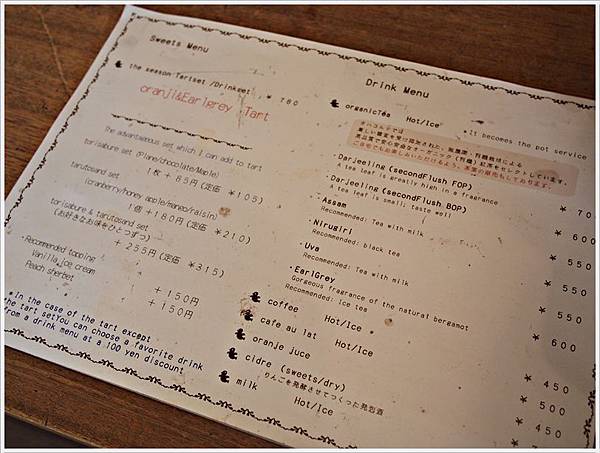 Sweets Menu
the season Tartset /Drinkset ￥780
oranji&Earlgrey Tart
The advantageous set which I can add to tart
torisabure set (Plane/chocolate/Maple)
1枚 + 85円 (定価 ￥105)
tarutosand set
(cranberry/honey apple/mango/raisin)
1個 + 180円 (定価 ￥210)
torisabure & tarutosand set
(お好きなお味をひとつずつ)
+ 255円 (定価 ￥315)
・Recommended topping
Vanilla ice cream +150円
Peach sherbet +150円
*In the case of the tart except
the tart setYou can choose a favorite drink
from a drink menu at a 100 yen discount
Drink Menu
organicTea Hot/Ice *It becomes the pot service
ご自宅でもお楽しみいただけるよう、本葉の販売もしております。
・Darjeeling (secondFlush FOP)
A tea leaf is greatly high in a fragrance
・Darjeeling (secondFlush BOP) ￥70
A tea leaf is small; taste well ￥600
・Assam
Recommended: Tea with milk ￥550
・Nirugiri
Recommended: black tea ￥550
・Uva
Recommended: Tea with milk ￥550
・EarlGrey
Gorgeous fragrance of the natural bergamot
Recommended: Ice tea ￥600
coffee Hot/Ice
cafe au lat Hot/Ice ￥450
oranje juce ￥500
cidre (sweets/dry) ￥450
りんごを発酵させてつくった発泡酒
milk Hot/Ice